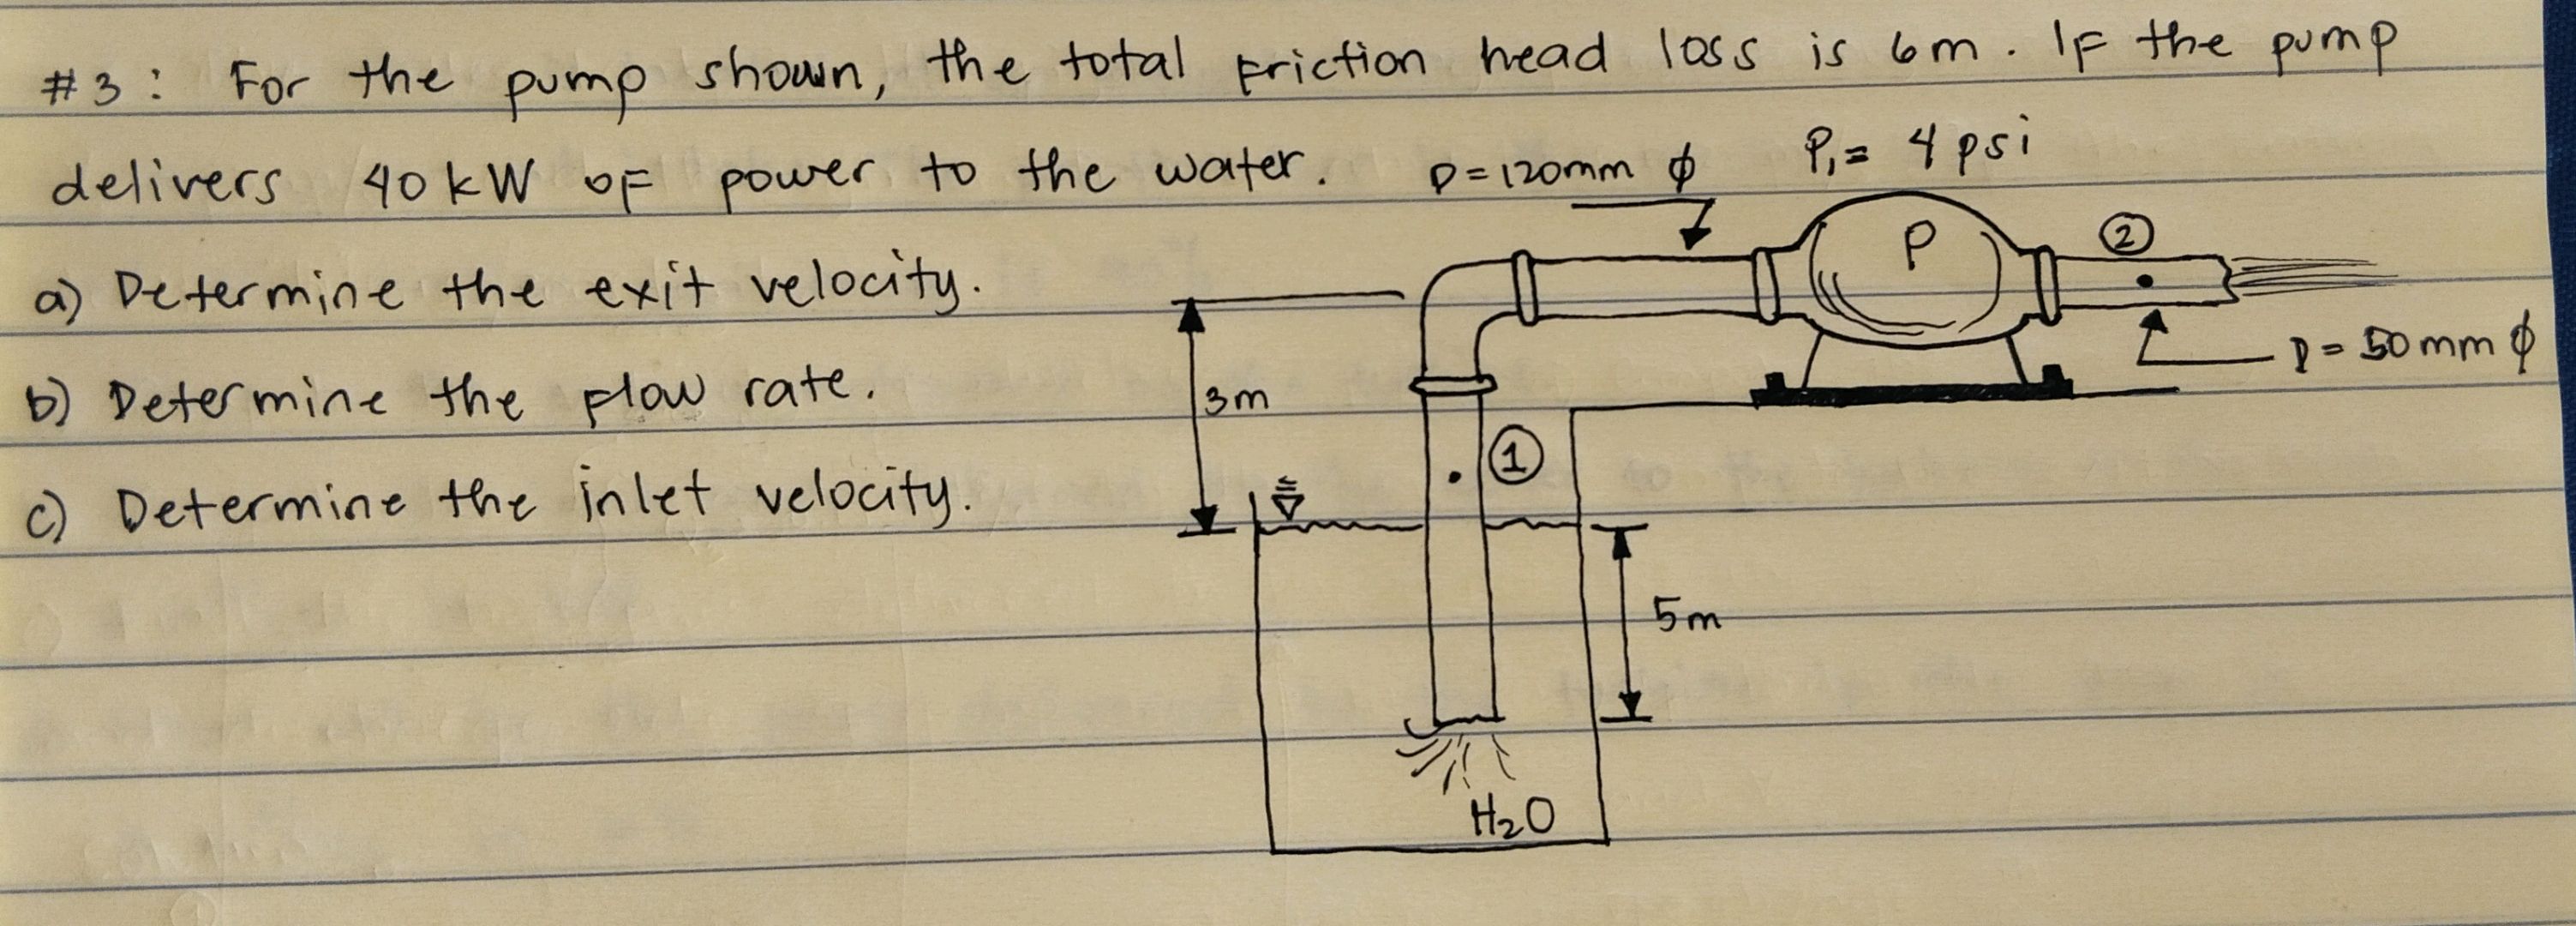 #3: For the pump shown, the total friction head loss is 6m. If the pump
delivers 40 kW of power to the water.
D=120mm ϕ
P₁= 4 psi
a) Determine the exit velocity.
b) Determine the flow rate.
c) Determine the inlet velocity.
P
②
D= 50mm ϕ
3m
①
5m
H₂O